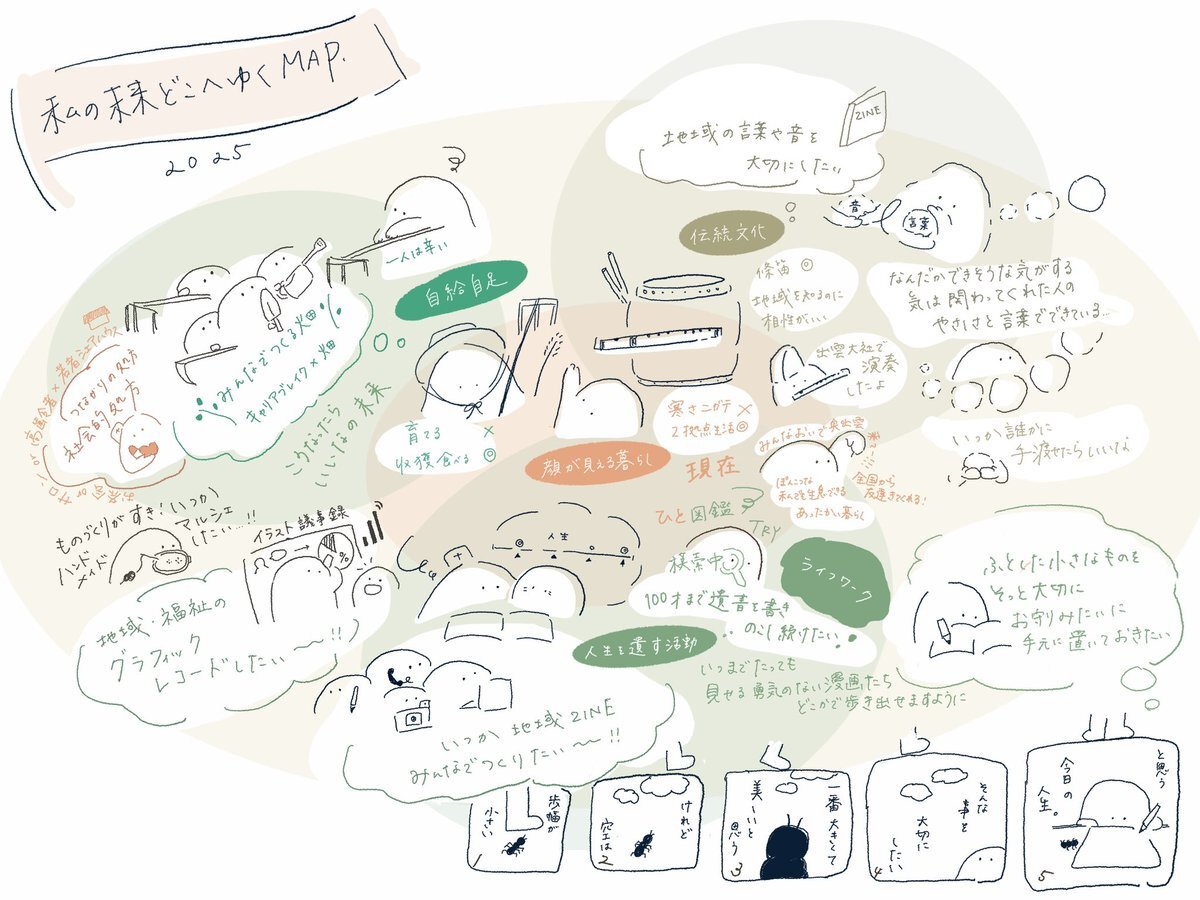 私の未来どこへゆくMAP.
2025
地域の言葉や音を
大切にしたい
ZINE
音
言葉
伝統文化
篠笛 ◎
地域を知るのに
相性がいい
なんだかできそうな気がする
気は関わってくれた人の
やさしさと言葉でできている…
出雲大社で
演奏
したよ
いつか誰かに
手渡せたらいいな
一人は辛い
自給自足
みんなでつくる畑
キャリアブレイク×畑
こうなったら
いいなの未来
高齢者×若者シェアハウス
つながりの処方
社会的処方
お茶会 or サロン or
育てる ×
収穫食べる ◎
寒さニガテ ×
2拠点生活◎
顔が見える暮らし
現在
みんなおいで奥出雲
ぽんこつな
私でも生息できる
あったかい暮らし
全国から
友達きてくれる!
ものづくりがすき!いつか
マルシェ
したい…!!
ハンド
メイド
イラスト議事録
地域・福祉の
グラフィック
レコードしたい〜!!
人生
ひと図鑑
TRY
模索中
ライフワーク
100才まで遺言を書き
のこし続けたい
人生を遺す活動
いつまでたっても
見せる勇気のない漫画たち
どこかで歩き出せますように
ふとした小さなものを
そっと大切に
お守りみたいに
手元に置いておきたい
いつか 地域ZINE
みんなでつくりたい〜!!
歩幅が
小さい
1
けれど
空は
2
一番大きくて
美しいと思う
3
そんな
事を
大切に
したい
4
と思う
今日の
人生。
5